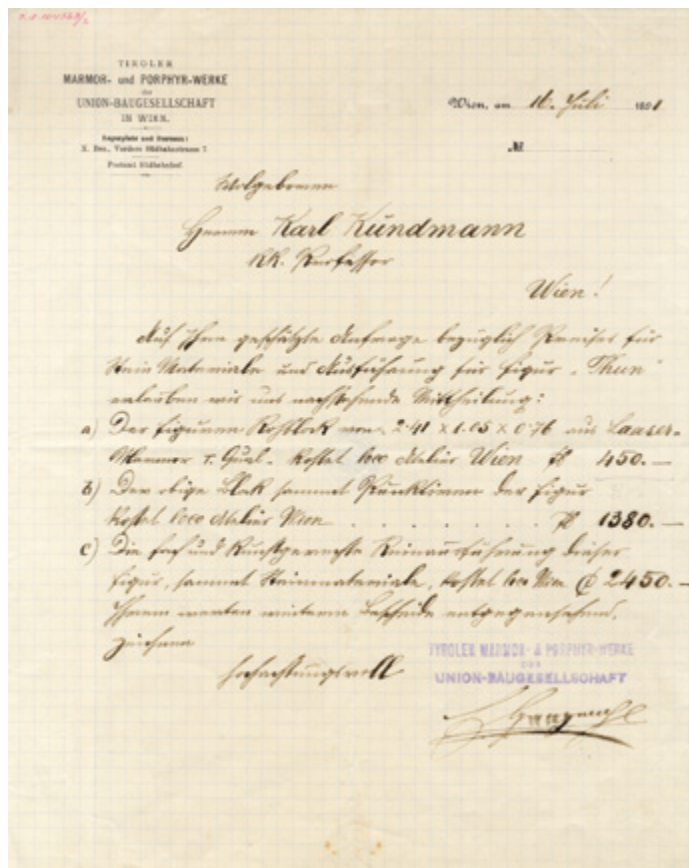 TIROLER
MARMOR- und PORPHYR-WERKE
der
UNION-BAUGESELLSCHAFT
IN WIEN.
X. Bez., Vordere Südbahnstrasse 7
Postamt Südbahnhof
Wien, am 16. Juli 1891
№
Wolgeboren
Herrn Karl Kundmann
kk. Professor
Wien!
Auf Ihre geschätzte Anfrage bezüglich Preises für
Stein Materiale und Ausführung für Figur „Thun“
erlauben wir uns nachstehende Mittheilung:
a) Der Figuren Rohblock von 2·41 × 1·05 × 0·76 aus Laaser-
Marmor I. Qual. kostet loco Atelier Wien fl 450.—
b) Der obige Block sammt Punktieren der Figur
kostet loco Atelier Wien . . . . . . . fl 1380.—
c) Die fach und Kunstgerechte Reinausführung dieser
Figur, sammt Steinmateriale, kostet loco Wien fl 2450.—
Ihrem werten weiteren Bescheide entgegensehend,
zeichnen
hochachtungsvoll
TYROLER MARMOR- & PORPHYR-WERKE
DER
UNION-BAUGESELLSCHAFT